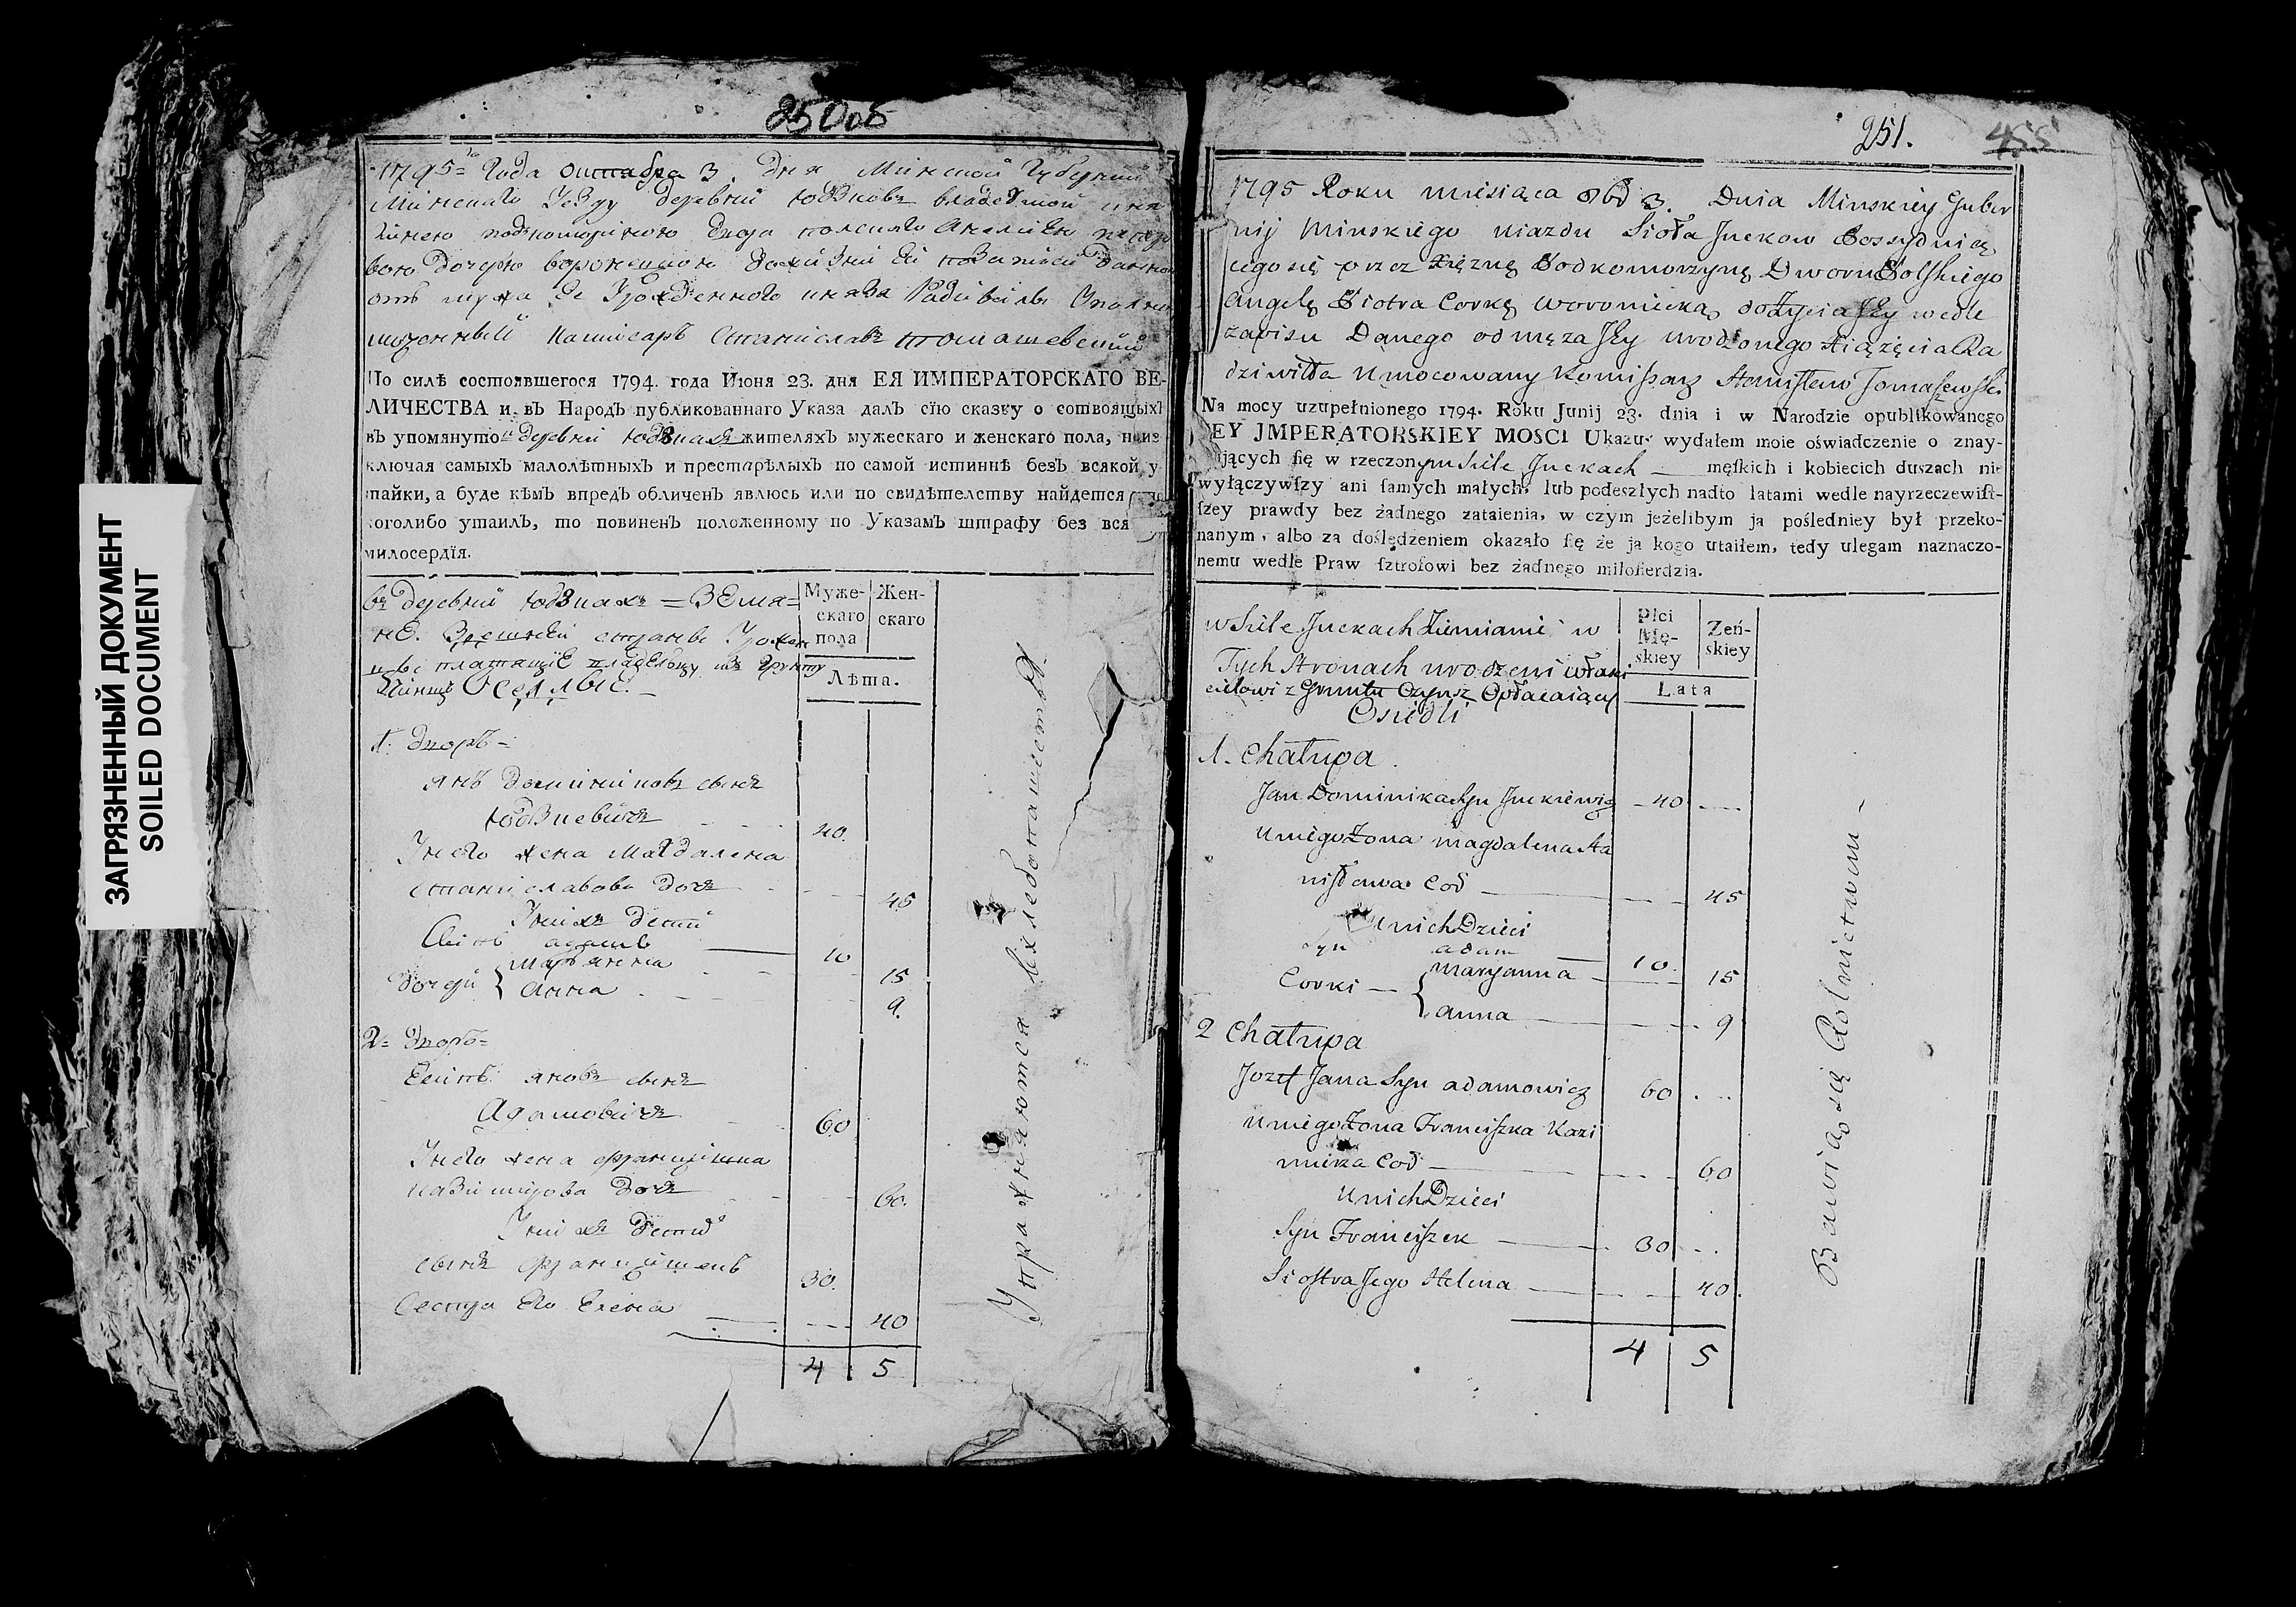 ЗАГРЯЗНЕННЫЙ ДОКУМЕНТ
SOILED DOCUMENT
250об
1795го Года октабра 3. дня Минской Губернии
Минскаго Уезду деревни владемой
двора полскаго
вою дочерю
отъ мужа Ее Урожденного князя Радивила
моченный Камисаръ Станиславъ Томашевский
По силѣ состоявшегося 1794. года Июня 23. дня ЕЯ ИМПЕРАТОРСКАГО ВЕ-
ЛИЧЕСТВА и въ Народъ публикованнаго Указа далъ сїю сказку о сотвоящыхъ
въ упомянуто деревни жителяхъ мужескаго и женскаго пола, неиз
ключая самыхъ малолѣтныхъ и престарѣлыхъ по самой истиннѣ безъ всякой у
тайки, а буде кѣмъ впредъ обличенъ явлюсь или по свидѣтелству найдется
коголибо утаилъ, то повиненъ положенному по Указамъ штрафу без вся
милосердїя.
въ деревни
Муже-
скаго
пола
Жен-
скаго
Лѣта.
чиншъ Оселлые.
1. Дворъ
янъ доминиковъ сынъ
40.
У него жена Магдалена
станиславова дочъ 45
У нихъ дети
Синъ адамъ 10
дочери { Марьянна 15
анна 9.
2 Дворъ
яновъ сынъ
Адамовичъ 60
У него жена францишка
казимирова дочъ 60.
У нихъ дети
сынъ францишекъ 30.
Сестра Его Елена 40
4 5
Упражняются хлебопашествомъ
251.
455
1795 Roku miesiąca 8bd 3. Dnia Minskiey Guber
nij Minskiego uiazdu Sioła Juckow Possyduią
cego się przez Xiężnę Podkomorzynę Dworu Polskiego
Angelę Piotra Corkę Woronicką do życia Jey wedle
zapisu Danego od męza Jey urodzonego Xiążęcia Ra
dziwiłła Umocowany Komissarz Stanisław Tomaszewski
Na mocy uzupełnionego 1794. Roku Junij 23. dnia i w Narodzie opublikowanego
JEY JMPERATORSKIEY MOSCI Ukazu wydałem moie oświadczenie o znay-
jących się w rzeczonym siele Juckach męskich i kobiecich duszach nie
wyłączywszy ani samych małych, lub podeszłych nadto latami wedle nayrzeczewist-
szey prawdy bez żadnego zataienia, w czym jeżelibym ja pośledniey był przeko-
nanym, albo za doślędzeniem okazało się że ja kogo utaiłem, tedy ulegam naznaczo-
nemu wedle Praw sztrofowi bez żadnego miłosierdzia.
w Siele Juckach Ziemianie w
Tych Stronach urodzeni właści
cielowi z Gruntu Czynsz Opłacaiący
Osiedli
Płci
Mę-
skiey
Zeń-
skiey
Lata
1. Chałupa
Jan Dominika Syn Juckiewicz 40
U niego Żona Magdalena Sta
nisława Cod 45
U nich Dzieci
Syn adam 10.
Corki { maryanna 15
anna 9
2 Chałupa
Jozef Jana Syn adamowicz 60
U niego Żona Franciszka Kazi
mirza Cod 60
U nich Dzieci
Syn Franciszek 30
Siostra Jego Helena 40
4 5
Bawią się Rolnictwem